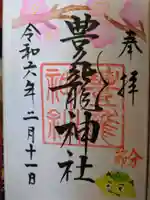 奉拝
豊龍神社
令和六年二月十一日